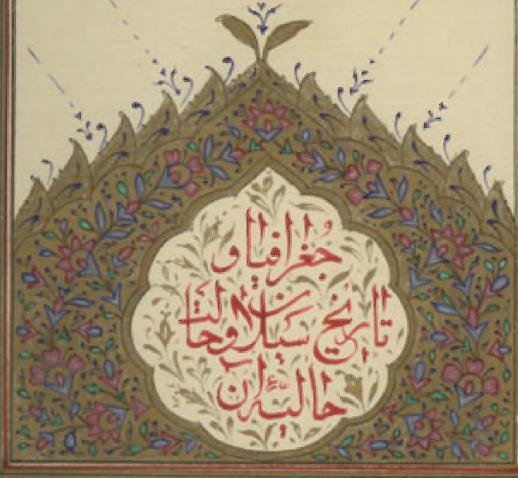 جغرافیا و
تاریخ سیلان و حالت
حالیهٔ آن